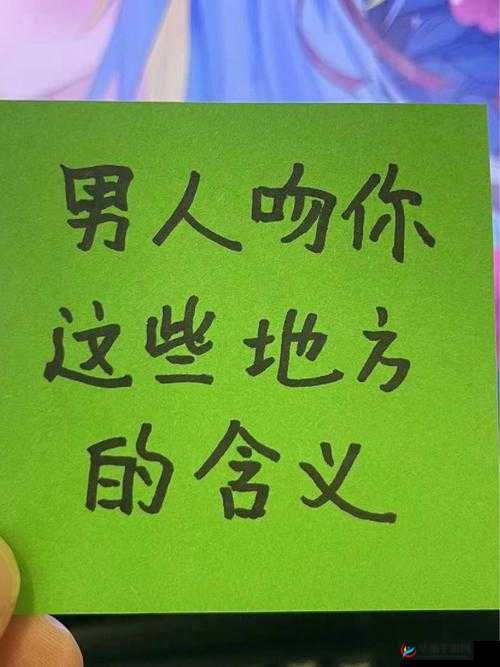 男人吻你
这些地方
的含义